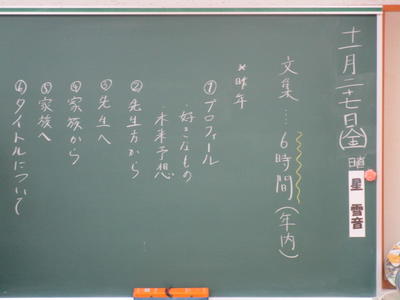 十一月二十七日(金)
日直
星 雪音
文集…6時間(年内)
*昨年
①プロフィール
・好きなもの
・未来予想
②先生方から
③先生へ
④家族から
⑤家族へ
⑥タイトルについて